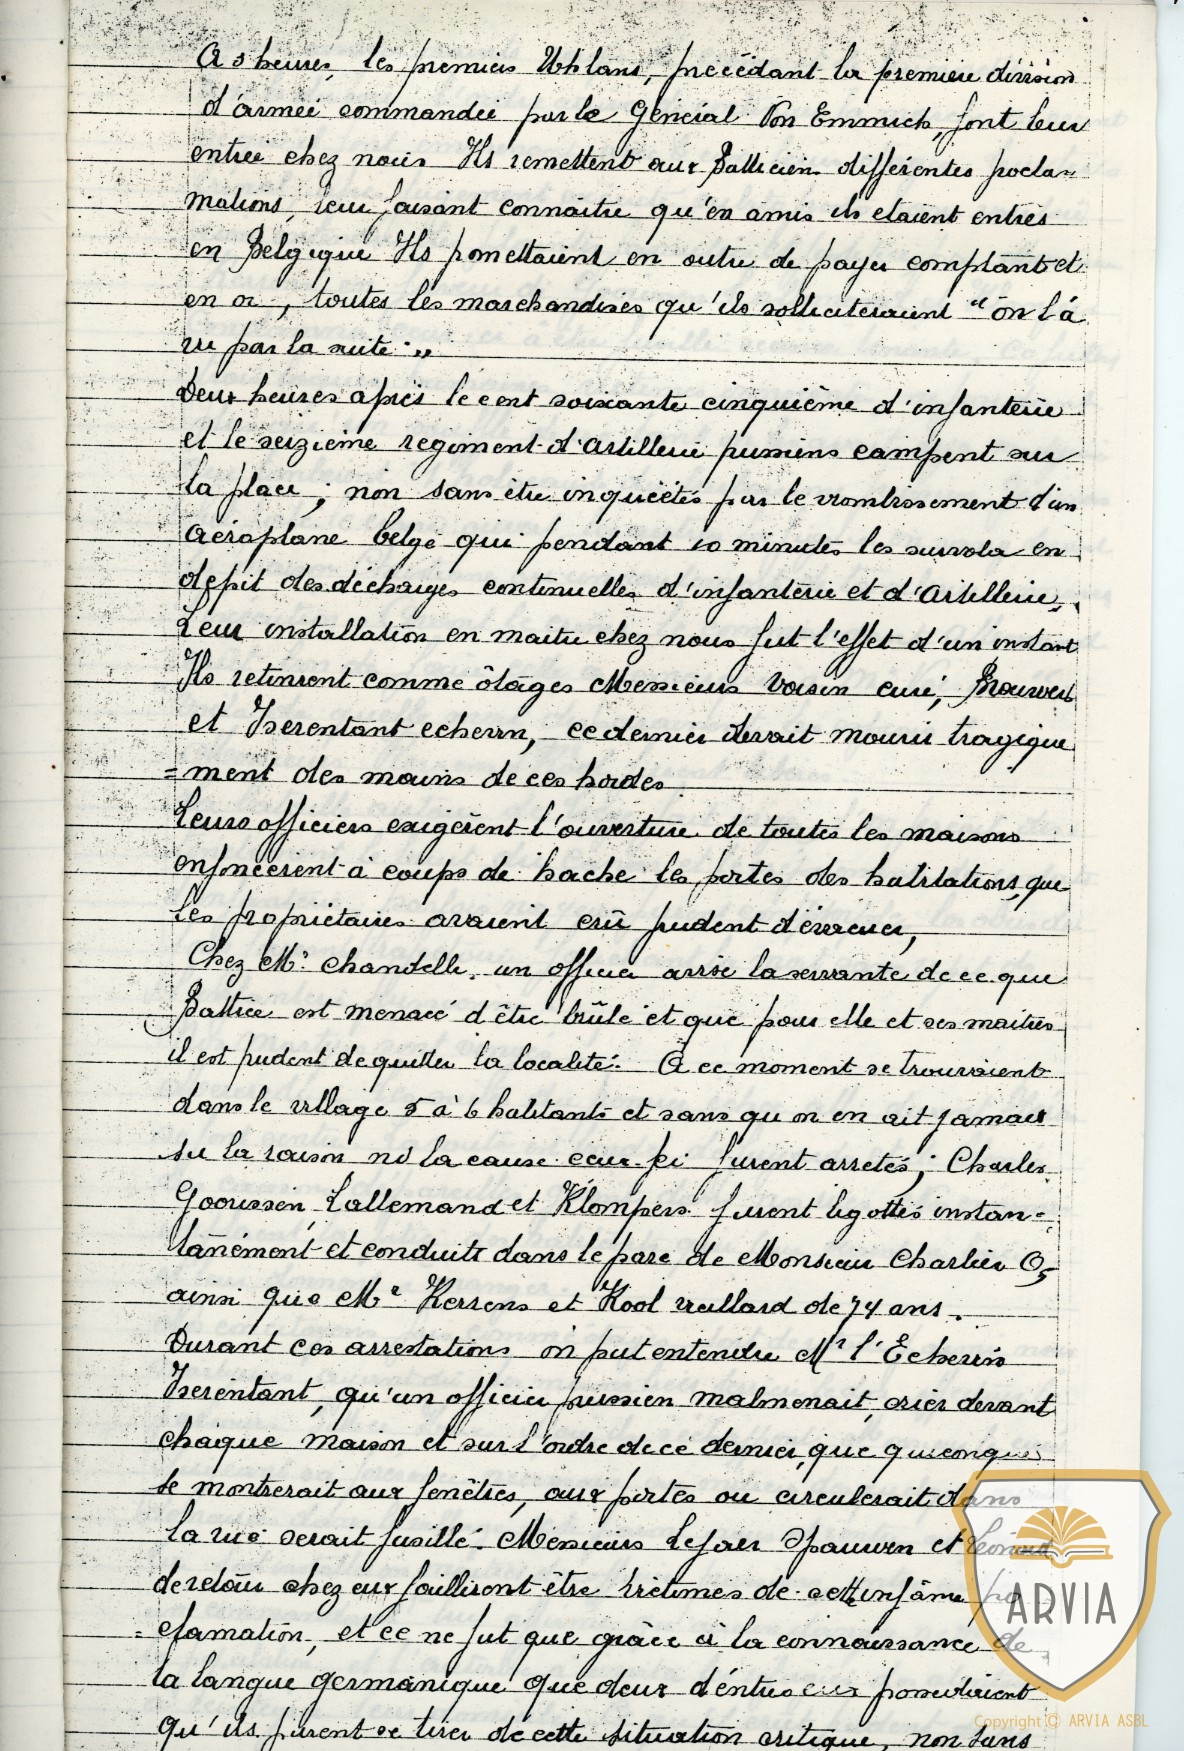 A 5 heures, les premiers Uhlans, précédant la première division
d'armée commandée par le Général Von Emmich, font leur
entrée chez nous Ils remettent aux Batticiens différentes procla-
mations, leur faisant connaître qu'en amis ils etaient entrés
en Belgique Ils promettaient en outre de payer comptant et
en or, toutes les marchandises qu'ils solliciteraient "on l'a
vu par la suite"
Deux heures après le cent soixante cinquième d'infanterie
et le seizième regiment d'Artillerie prussiens campent sur
la place; non sans être inquiétés par le vrombissement d'un
Aéroplane belge qui pendant 10 minutes les survola en
dépit des décharges continuelles d'infanterie et d'Artillerie.
Leur installation en maitre chez nous fut l'effet d'un instant
Ils retinrent comme ôtages Messieurs Voisin curé,
et Iserentant echevin, ce dernier devait mourir tragique
=ment des mains de ces hordes.
Leurs officiers exigèrent l'ouverture de toutes les maisons
enfoncèrent à coups de hache les portes des habitations, que
les propriétaires avaient crû prudent d'évacuer,
Chez Mr. Chandelle, un officier avise la servante de ce que
Battice est menacé d'être brûlé et que pour elle et ses maitres
il est prudent de quitter la localité. A ce moment se trouvaient
dans le village 5 à 6 habitants et sans qu'on en ait jamais
su la raison ni la cause ceux-ci furent arretés; Charles
Goorissen, Lallemand et Klompers furent ligottés instan-
tanément et conduits dans le parc de Monsieur Charlier O,
ainsi que Mr Kerrens et Kool vieillard de 74 ans.
Durant ces arrestations on put entendre Mr l'Echevin
Iserentant, qu'un officier prussien malmenait, crier devant
chaque maison et sur l'ordre de ce dernier, que quiconque
se montrerait aux fenêtres, aux portes ou circulerait dans
la rue serait fusillé. Messieurs Lejaer Spauwen et Léonard
de retour chez eux faillirent être victimes de cette infâme pro
=clamation, et ce ne fut que grâce à la connaissance de
la langue germanique que deux d'entre eux possédaient
qu'ils purent se tirer de cette situation critique, non sans
ARVIA
Copyright © ARVIA ASBL